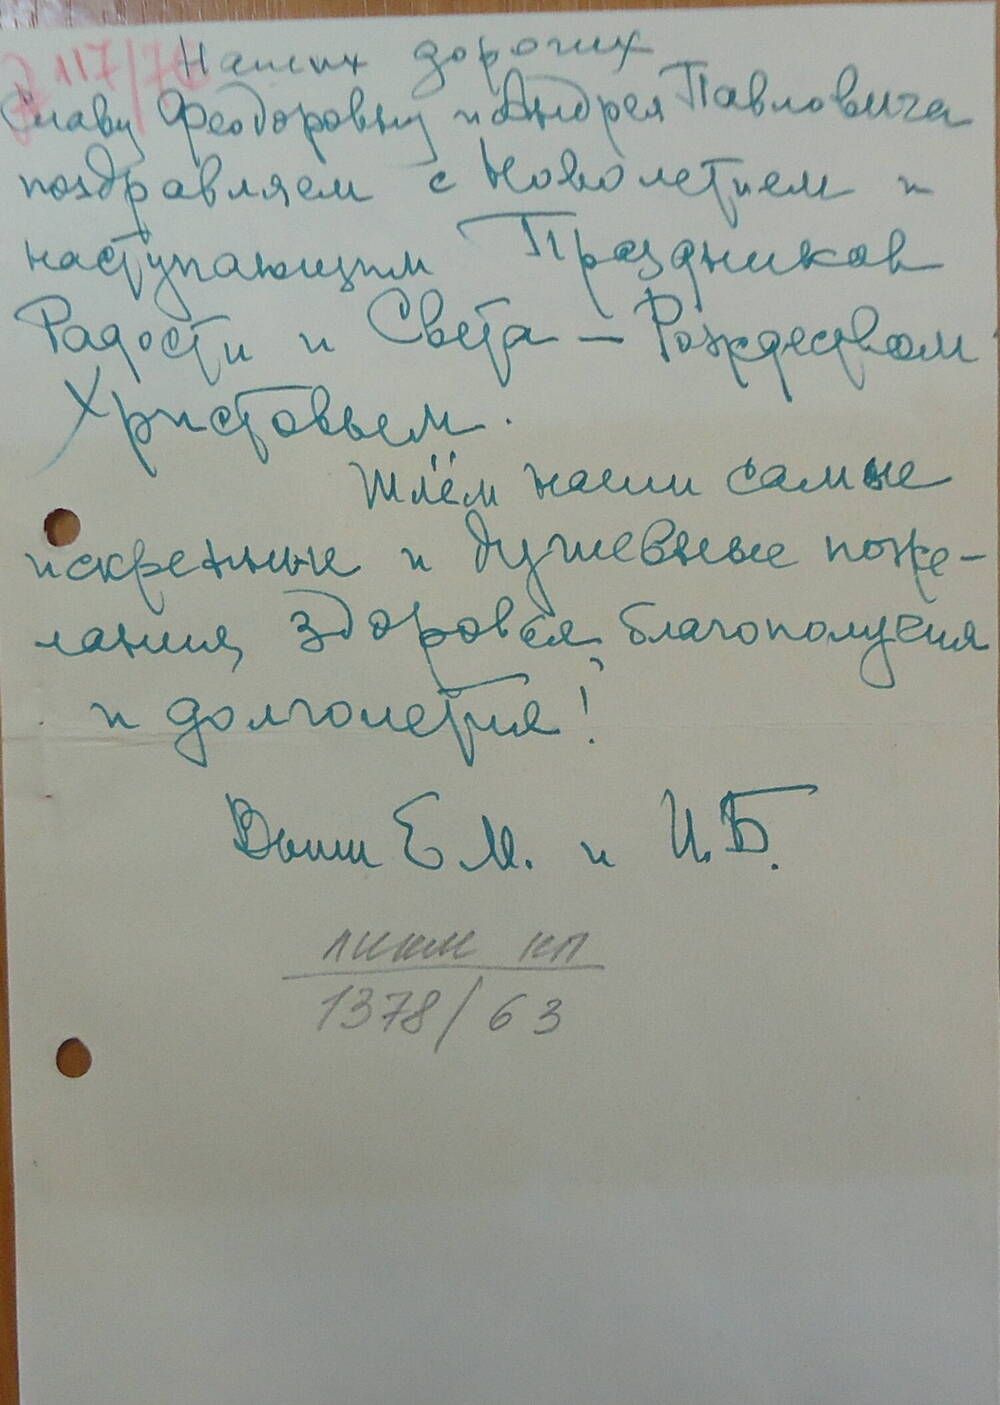 117/76
Наших дорогих
Славу Феодоровну и Андрея Павловича
поздравляем с Новолетием и
наступающим Праздником
Радости и Света – Рождеством
Христовым.
Шлём наши самые
искренние и душевные поже-
лания, здоровья, благополучия
и долголетия!
Ваши Е М. и И.Б.
ЛИКМ КП
1378/63